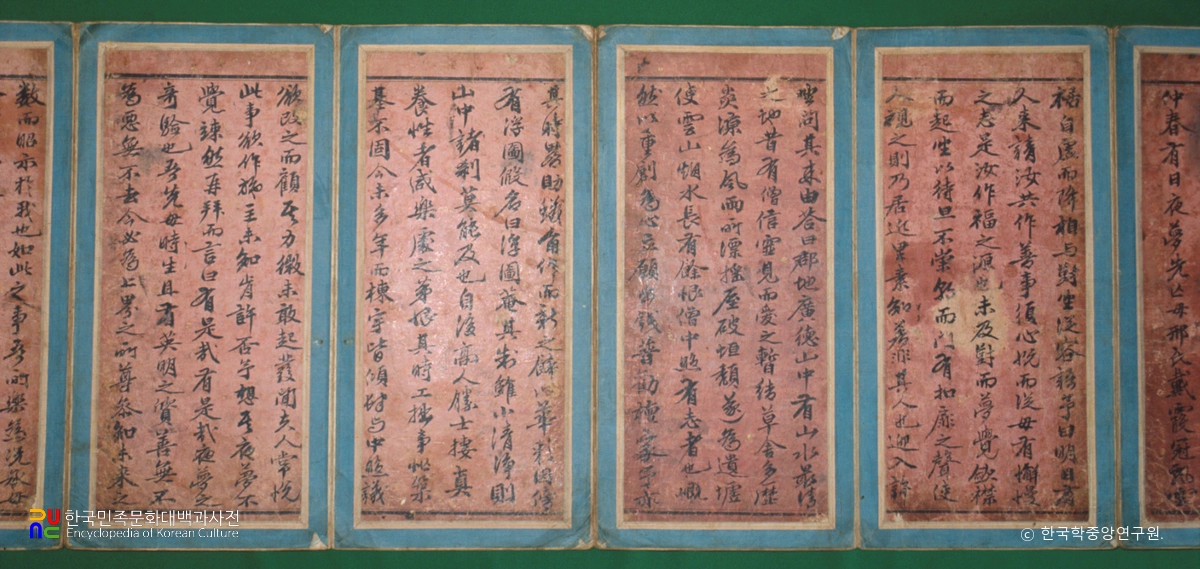 仲春有日夜夢先亡母邢氏戴霞冠
自虛而降相与對坐從容語予曰明日有
人来請汝共作善事須心悅而從毋有懈慢
之志是汝作福之源也未及對而夢覺斂襟
而起坐以待旦不崇朝而門有扣扉之聲使
人視之則乃居近里素知其人也迎入
坐問其来由答曰郡地廣德山中有山水最清
之地昔有僧信靈見而愛之暫結草舍多歷
炎凉為風雨所漂搖屋破垣頹遂為遺墟
使雲山烟水長有餘恨僧中照有志者也慨
然以重創為心立願錢普勸檀家予亦
具財助蟻有作而新之餘以華彩因
有浮圖假名曰浮圖菴其制雖小清淨則
山中諸刹莫能及也自後高人勝士捿真
養性者咸樂處之第恨其時工拙事忙築
基不固今未多年而棟宇皆傾肆与中照議
欲改之而顧其力微未敢起發聞夫人常悅
此事欲作施主未知肯許否予想其夜夢不
覺竦然再拜而言曰有是哉有是哉夜夢之
奇驗也吾先母時生且有英明之資善無不
為惡無不去今必為上界之所尊叅知未来之
數而昭示於我也如此之事吾所樂為況承母
한국민족문화대백과사전
Encyclopedia of Korean Culture
ⓒ 한국학중앙연구원.